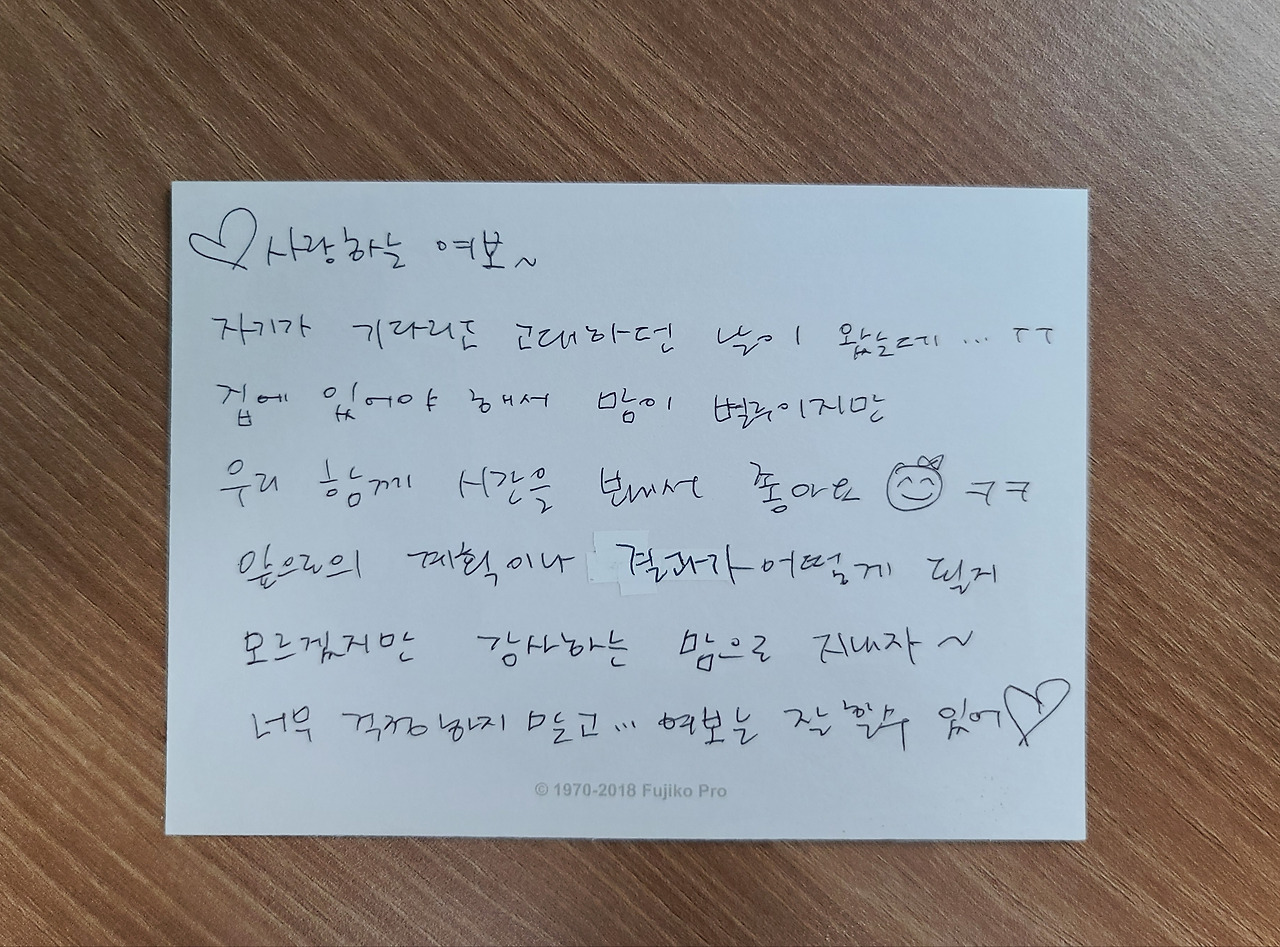 ♡사랑하는 여보~
자기가 기다리고 고대하던 날이 왔는데... ㅜㅜ
집에 있어야 해서 맘이 별루이지만
우리 함께 시간을 보내서 좋아요 ㅋㅋ
앞으로의 계획이나 결과가 어떻게 될지
모르겠지만 감사하는 맘으로 지내자~
너무 걱정하지 말고... 여보는 잘 할수 있어♡
© 1970-2018 Fujiko Pro